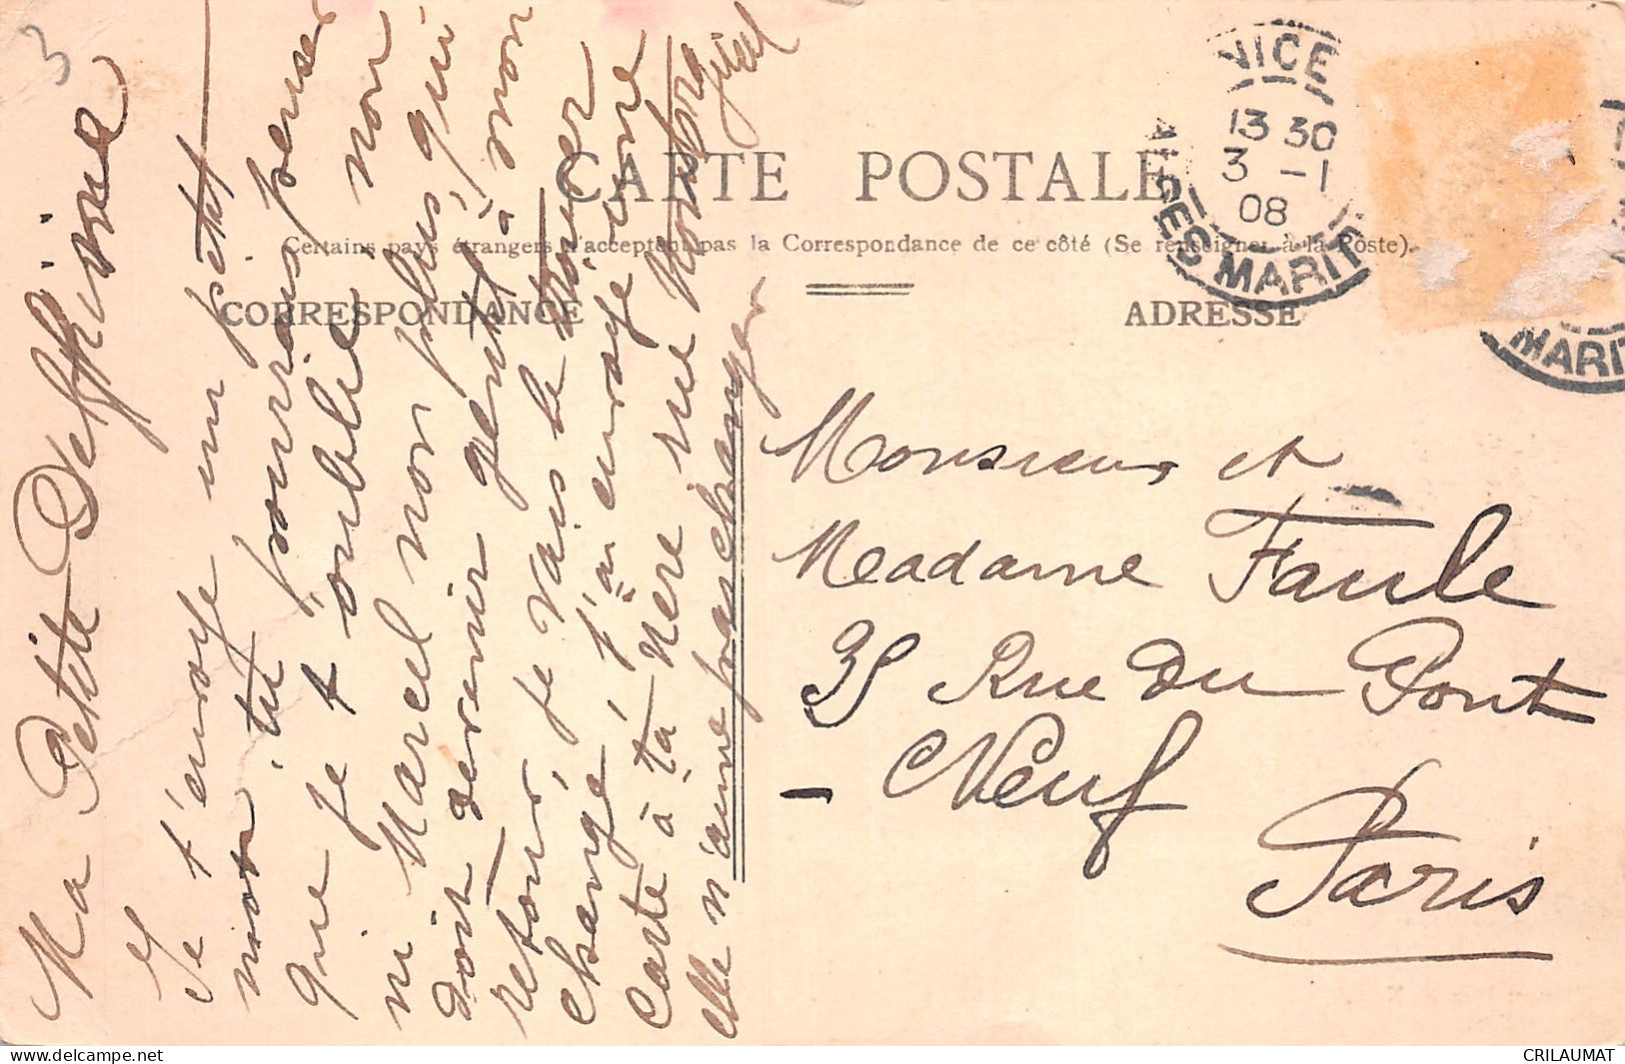 3
CARTE POSTALE
Certains pays étrangers n'acceptent pas la Correspondance de ce côté (Se renseigner à la Poste).
CORRESPONDANCE
ADRESSE
NICE
13 30
3 -1
08
ALPES MARIT
MARIT
Ma Petite Delphine
Je t'envoye un petit
mot tu pourrais penser
que je t oublie non
ni Marcel non plus qui
doit devenir gentil à mon
retour, je vais le trouver
changé, j'ai envoyé une
Carte à ta Mère rue
elle n'aure pas changer
Monsieur et
Madame Faule
35 Rue Du Pont
- Neuf
Paris
delcampe.net
CRILAUMAT